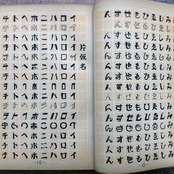 チトヘホニハロイ
チトヘホニハロイ
チトヘホニハロイ
チトヘホニハロイ
チトヘホニハロイ
チトヘホニハロイ
チトヘホニハロイ
チトヘホニハロイ
チトヘホニハロイ
チトヘホニハロイ
片仮
んすせもひゑしみ
んすせもひゑしみ
んすせもひゑしみ
んすせもひゑしみ
んすせもひゑしみ
んすせもひゑしみ
んすせもひゑしみ
んすせもひゑしみ
んすせもひゑしみ
んすせもひゑしみ
んすせもひゑしみ